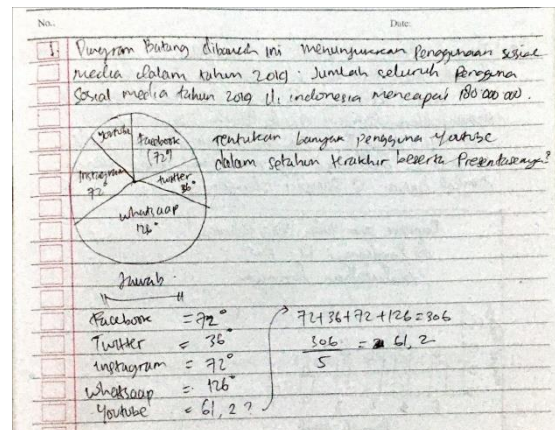 No.. Date:
1. Diagram Batang dibawah ini menunjukkan Penggunaan sosial
media dalam tahun 2019. Jumlah seluruh Pengguna
Sosial media tahun 2019 di indonesia mencapai 180 000 000.
Youtube
Facebook
(72°)
Instagram
72°
twitter
36°
Whatsaap
126°
Tentukan banyak pengguna Youtube
dalam setahun terakhir beserta Presentasenya?
Jawab.
Facebook = 72°
Twitter = 36°
Instagram = 72°
Whatsaap = 126°
Youtube = 61,2 ?
72+36+72+126=306
306
5
= 61,2